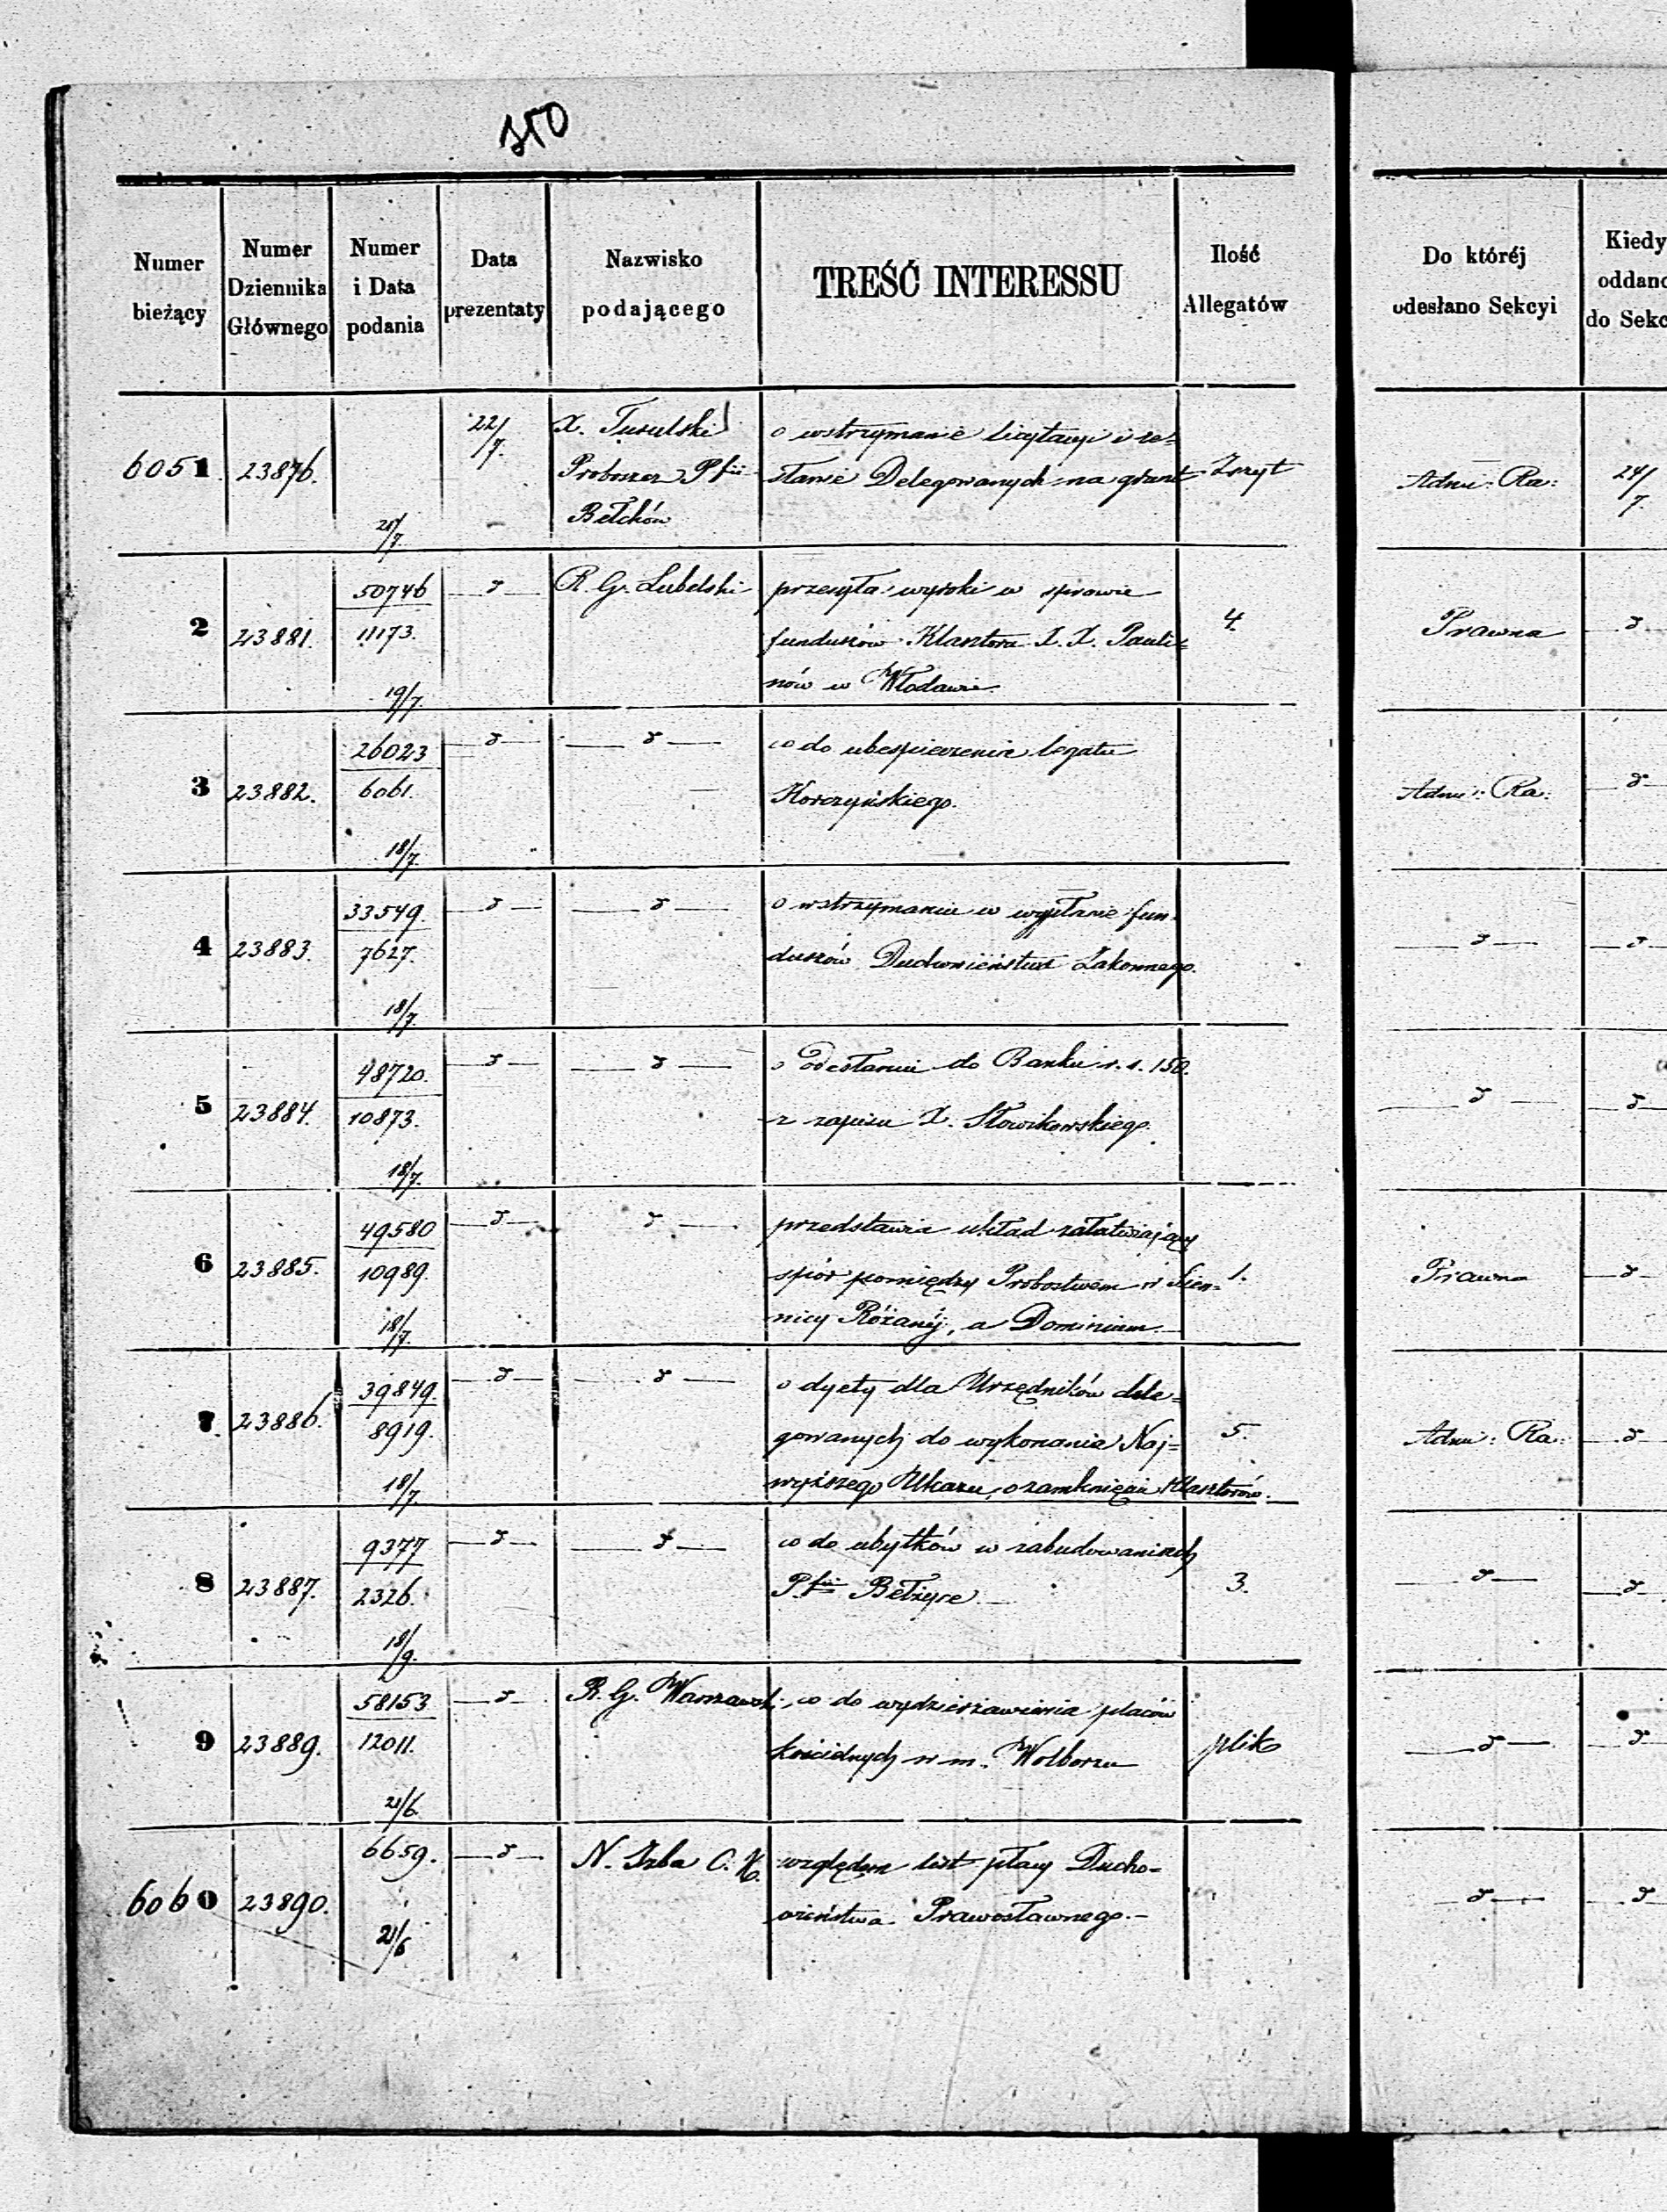 350
Numer bieżący
Numer Dziennika Głównego
Numer i Data podania
Data prezentaty
Nazwisko podającego
TREŚĆ INTERESSU
Ilość Allegatów
Do któréj odesłano Sekcyi
Kiedy oddano do Sekc
6051. 23876. 21/7. 22/7.
X. Tusulski
Proboszcz Pfii
Bełchów
o wstrzymanie licytacyi i ze=
słanie Delegowanych na grunt
Zszyt
Adm: Ra: 24/7.
2 23881. 50746 11173. 19/7. d
R. G. Lubelski
przesyła wyroki w sprawie
funduszów Klasztoru X. X. Pauli=
nów w Włodawie.
4.
Prawna d
3 23882. 26023 6061. 18/7. d d
co do ubespieczenia legatu
Korczyńskiego.
Adm: Ra: d
4 23883. 33549. 7627. 18/7. d d
o wstrzymaniu w wypłacie fun
duszów Duchowieństwa Zakonnego.
d d
5 23884. 48720. 10873. 18/7. d d
o odesłaniu do Banku r. s. 150.
z zapisu X. Słowikowskiego.
d d
6 23885. 49580 10989. 18/7. d d
przedstawia układ załatwiający
spór pomiędzy Probostwem w Sien=
nicy Różanéj, a Dominium.
1.
Prawna d
7. 23886. 39849. 8919. 18/7. d d
o dyety dla Urzędników dele=
gowanych do wykonania Naj=
wyższego Ukazu, o zamknięciu Klasztorów.
5.
Adm: Ra: d
8 23887. 9377 2326. 18/9. d d
co do ubytków w zabudowaniach
Pfii Bełżyce
3.
d d
9 23889. 58153 12011. 21/6. d
R. G. Warszawski
co do wydzierzawienia placów
kościelnych w m. Wolborzu
plik
d d
6060 23890. 6659. 21/6 d
N. Izba O. K.
względem list płacy Ducho-
wieństwa Prawosławnego.-
d d